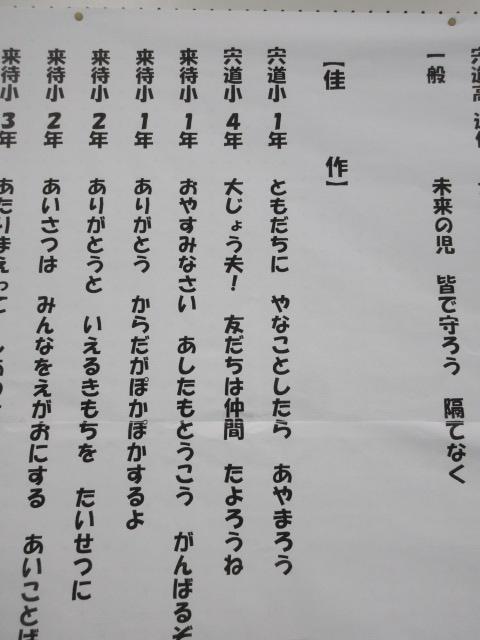 宍道高
一般 未来の児 皆で守ろう 隔てなく
【佳作】
宍道小 1年 ともだちに やなことしたら あやまろう
宍道小 4年 大じょう夫! 友だちは仲間 たよろうね
来待小 1年 おやすみなさい あしたもとうこう がんばるぞ
来待小 1年 ありがとう からだがぽかぽかするよ
来待小 2年 ありがとうと いえるきもちを たいせつに
来待小 2年 あいさつは みんなをえがおにする あいことば
来待小 3年 あたりまえって